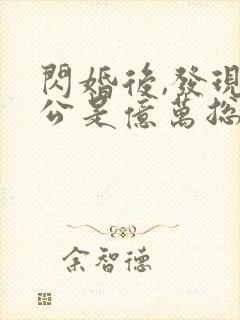 閃婚後,發現
公是億萬總
余智德